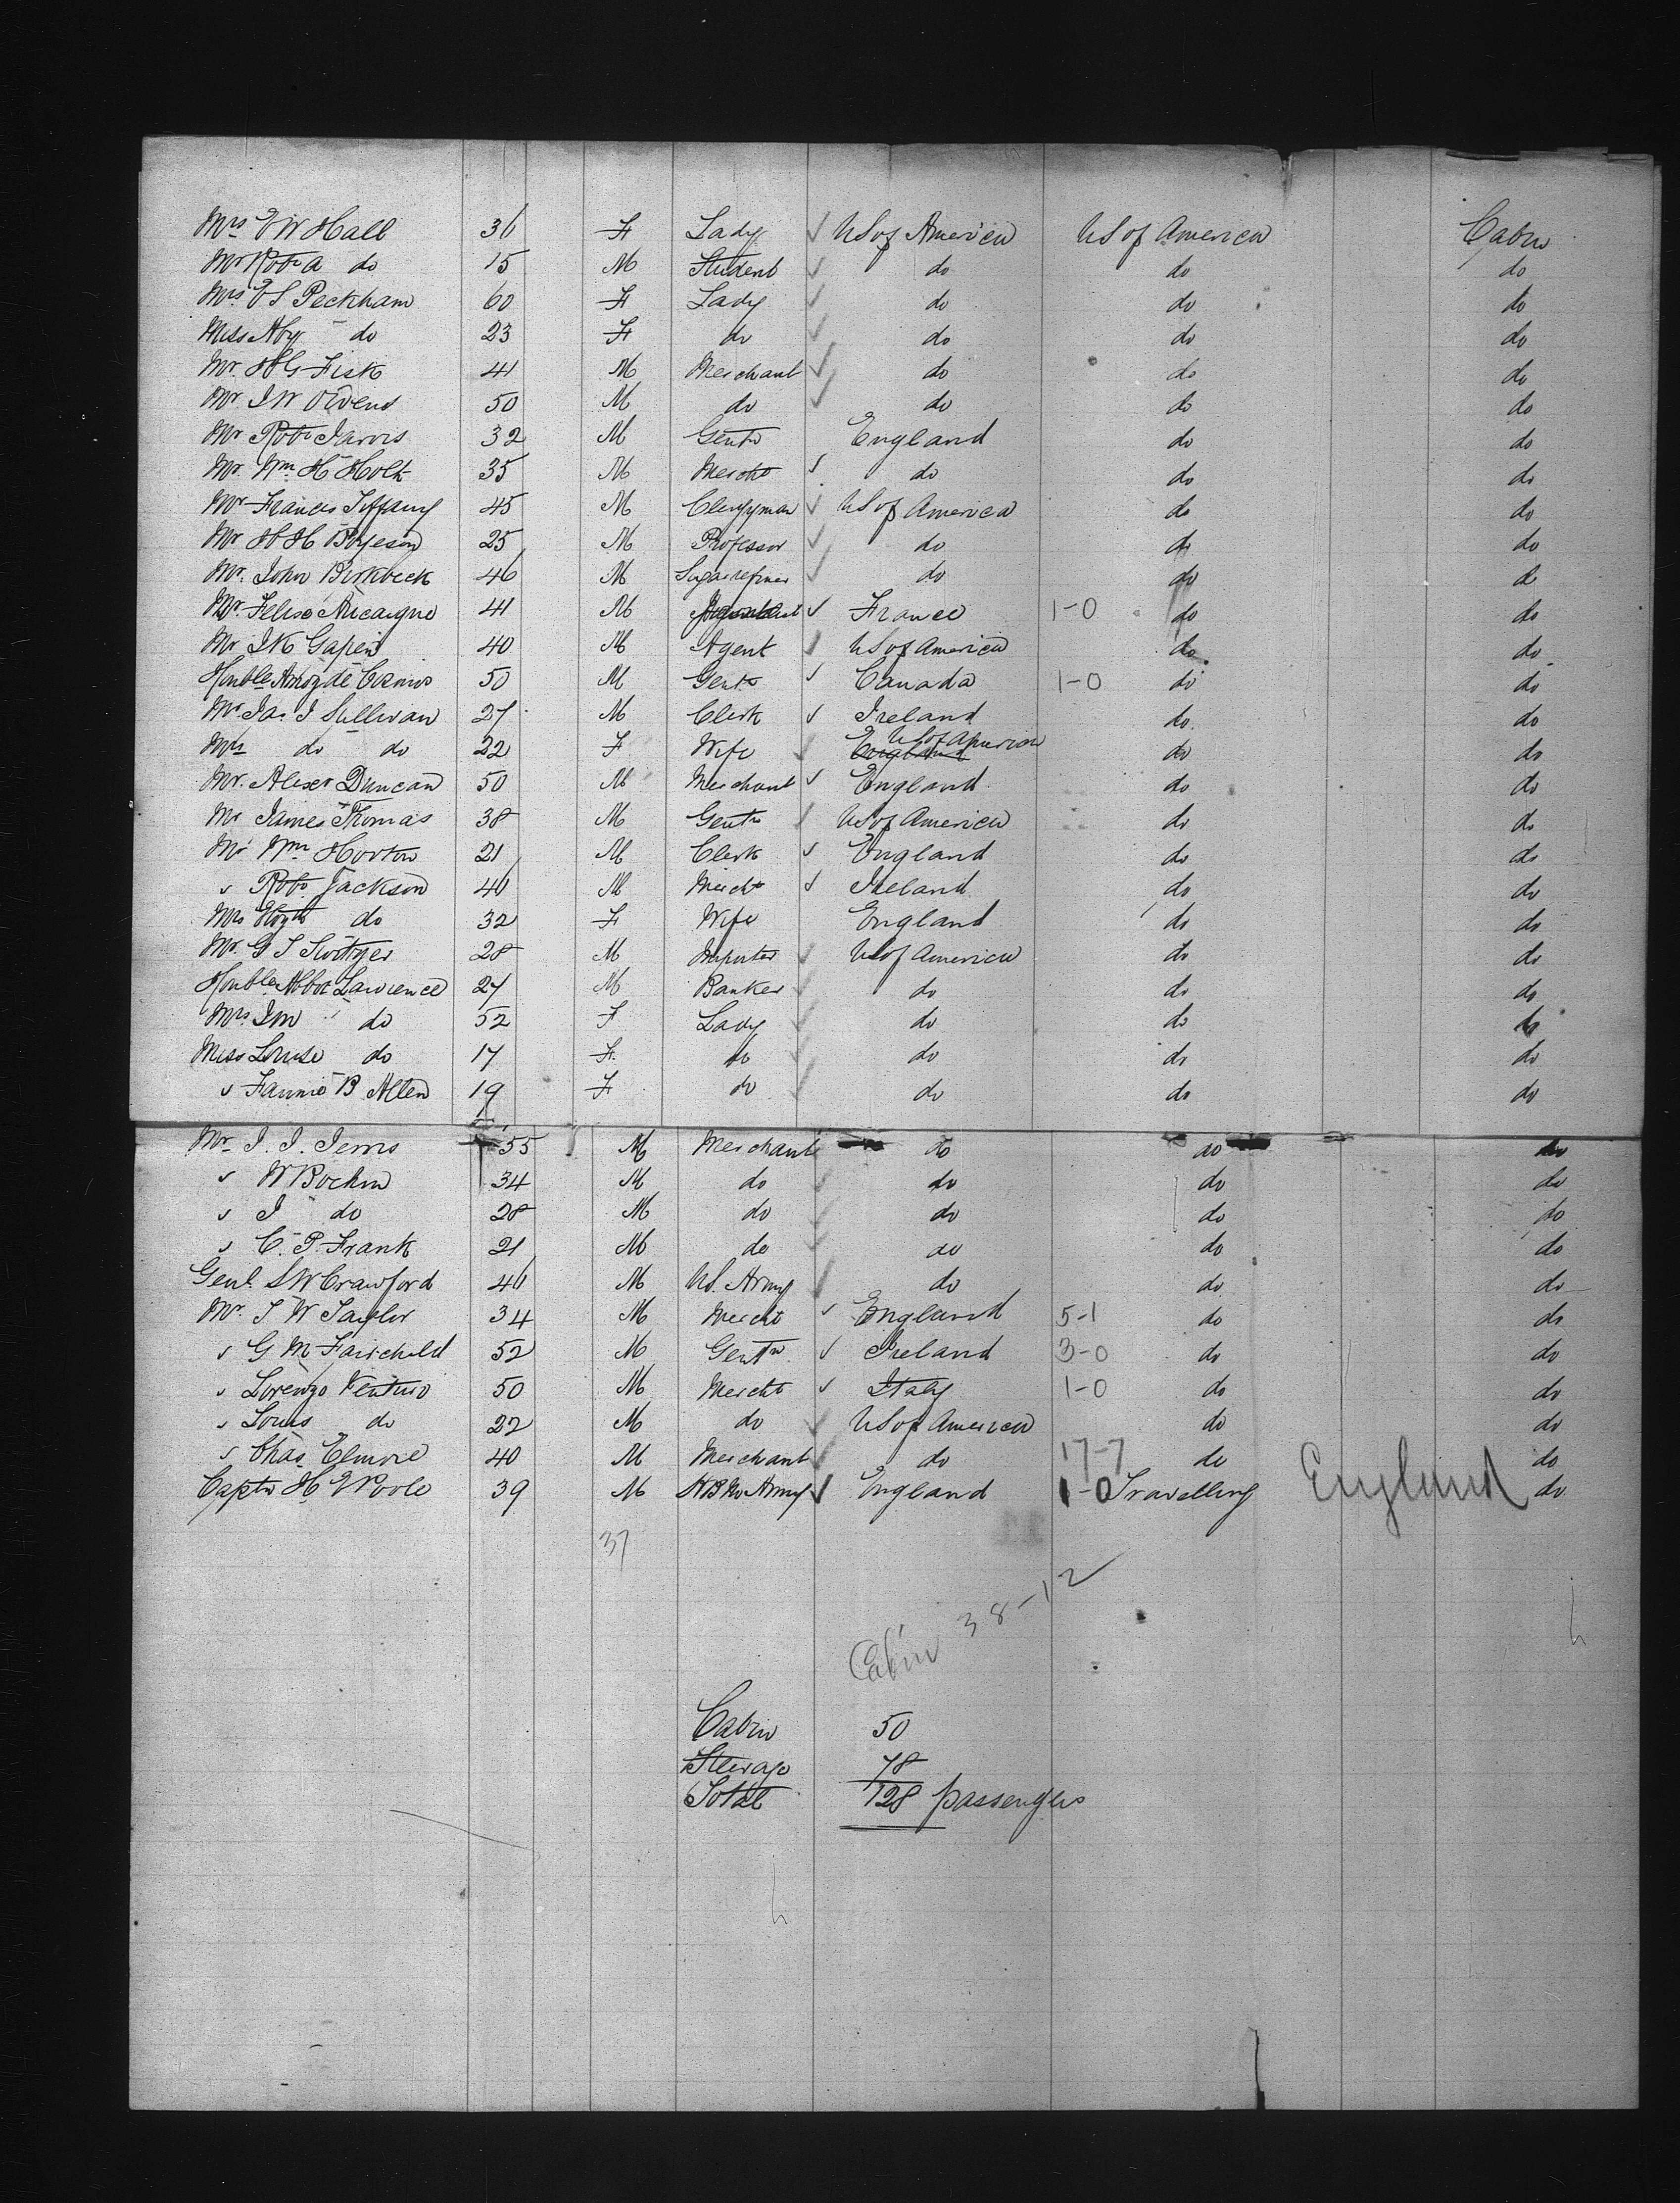 Mrs E W Hall 36 F Lady ✓ US of America US of America Cabin
Mr Robt A do 15 M Student ✓ do do do
Mrs E S Peckham 60 F Lady ✓ do do do
Miss Aby do 23 F do ✓ do do do
Mr. H G Fisk 41 M Merchant ✓ do do do
Mr. J W Owens 50 M do ✓ do do do
Mr Robt Jarvis 32 M Gentn England do do
Mr. Wm H Holt 35 M Mercht ✓ do do do
Mr Francis Tiffany 45 M Clergyman ✓ US of America do do
Mr H H Boyesen 25 M Professor ✓ do do do
Mr. John Birkbeck 46 M Sugar refiner ✓ do do do
Mr 41 M ✓ France 1-0 do do
Mr J K Gapen 40 M Agent US of America do do
Honble Amor de Cosmos 50 M Gentn ✓ Canada 1-0 do do
Mr Jas. J Sullivan 27 M Clerk ✓ Ireland do do
Mrs do do 22 F Wife ✓ England US of America do do
Mr. Alexr Duncan 50 M Merchant ✓ England do do
Mr James Thomas 38 M Gentn US of America do do
Mr Wm Horton 21 M Clerk ✓ England do do
" Robt Jackson 46 M Mercht ✓ Ireland do do
Mrs do 32 F Wife England do do
Mr. G S 28 M Importer ✓ US of America do do
Honble Abbot Lawrence 27 M Banker ✓ do do do
Mrs. do 52 F Lady ✓ do do do
Miss Louise do 17 F. do ✓ do do do
" Fannie B Allen 19 F do ✓ do do do
Mr. J. J. 55 M Merchant do do do
" W 34 M do ✓ do do do
" J do 28 M do ✓ do do do
" C. P. Frank 21 M do ✓ do do do
Genl. S W Crawford 46 M US. Army do do do
Mr. J W Taylor 34 M Mercht ✓ England 5-1 do do
" G M Fairchild 52 M Gentn ✓ Ireland 3-0 do do
" Lorenzo Venturo 50 M Mercht ✓ Italy 1-0 do do
" Louis do 22 M do ✓ US of America do do
" Chas Elmore 40 M Merchant ✓ do 17-7 do do
Captn H E Poole 39 M H B M Army ✓ England 1-0 Travelling England do
37
Cabin 38-12
Cabin 50
Steerage 78
Total 128 passengers